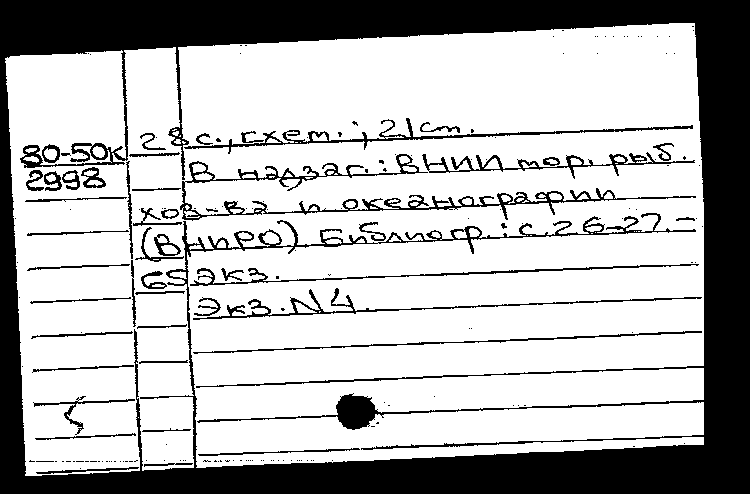 28 с., схем.; 21 см.
80-50к
2998
В надзаг.: ВНИИ мор. рыб.
хоз-ва и океанографии
(ВНИРО). Библиогр.: с. 26-27. -
65 экз.
Экз. N 4.
5